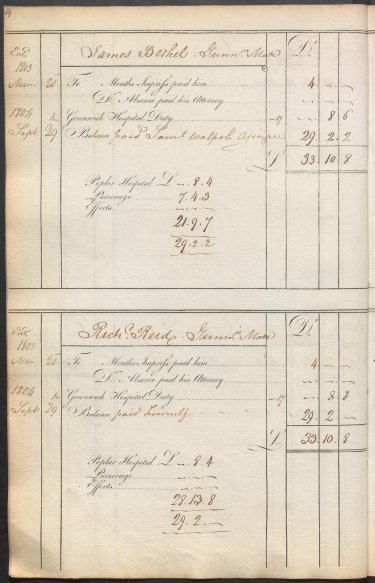 14
Ent.d James Bethel. Gunn.rs Mate D.r
1803
Mar. 20 To Months Imprest paid him 4 " "
D.o Absence paid his Attorney " " "
1804 Greenwich Hospital Duty 17 " 8 6
Sept. 29 Balance paid Sam.l Walpole 29. 2. 2
£ 33. 10. 8
Poplar Hospital £ ". 8. 4
Purserage 7. 4. 3
Effects
21. 9. 7
29. 2. 2
Ent.d Rich.d Reid. Gunn.rs Mate D.r
1803
Mar. 20 To Months Imprest paid him 4 " "
D.o Absence paid his Attorney " " "
1804 Greenwich Hospital Duty 17 " 8 8
Sept. 29 Balance paid himself 29. 2. "
£ 33. 10. 8
Poplar Hospital £ ". 8. 4
Purserage
Effects
28. 13. 8
29. 2. "